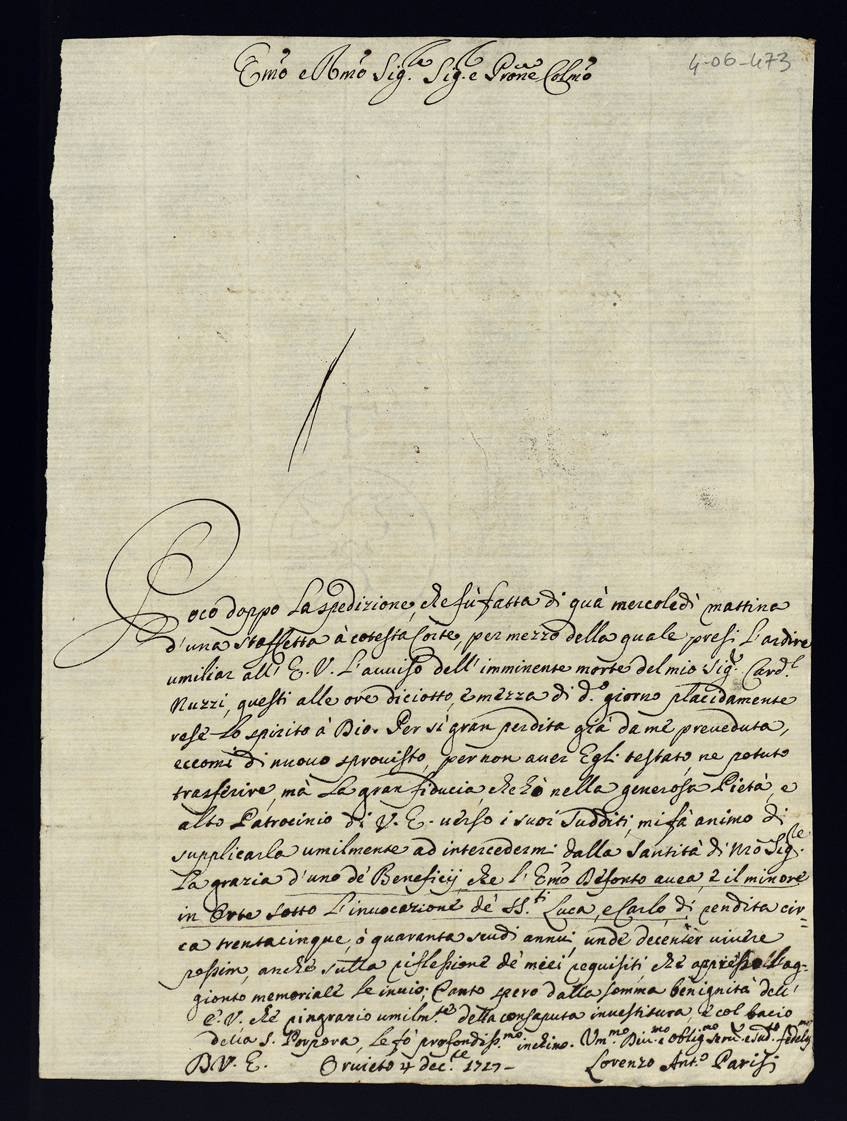 Emo e Rmo Sig.re Sig.e e Prone Colmo
4-06-473
Poco doppo La spedizione, che fù fatta di quà mercoledì mattina
d'una staffetta à cotesta Corte, per mezzo della quale presi L'ardire
umiliar all' E. V. L'avviso dell'imminente morte del mio Sig.r Card.l
Nuzzi, questi alle ore diciotto, e mezza di d.o giorno placidamente
rese Lo spirito à Dio. Per sì gran perdita già da me preveduta,
eccomi di nuovo sprovisto, per non aver Egli testato, ne potuto
trasferire, mà La gran fiducia che hò nella generosa Pietà, e
alto Patrocinio di V. E. verso i suoi sudditi, mi fà animo di
supplicarla umilmente ad intercedermi dalla Santità di Nro Sig.re
La grazia d'uno de' Beneficij, che l'Emo Defonto avea, e il minore
in Orte sotto L'invocazione de' SS.ti Luca, e Carlo, di rendita cir=
ca trentacinque, ò quaranta scudi annui, unde decenter vivere
possim, anche sulla riflessione de' miei requisiti che appresso all'ag-
gionto memoriale Le invio; Tanto spero dalla somma benignità dell'
E. V. che ringrazio umilm.te della consaputa investitura, e col bacio
della S. Porpora, Le fò profondiss.mo inchino. Um.mo Div.mo e Oblig.mo serv.e e sud.o fedeliss.mo
D. V. E. Orvieto 4 dec.re 1717 -
Lorenzo Ant.o Parisi